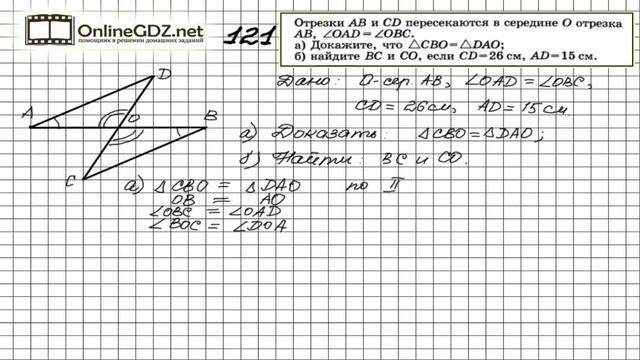 OnlineGDZ.net
помощник в решении домашних заданий
121
Отрезки AB и CD пересекаются в середине O отрезка
AB, ∠OAD = ∠OBC.
а) Докажите, что △CBO = △DAO;
б) найдите BC и CO, если CD = 26 см, AD = 15 см.
Дано: O-сер. AB, ∠OAD = ∠OBC,
CD = 26 см, AD = 15 см.
а) Доказать: △CBO = △DAO;
б) Найти: BC и CO.
D
A
O
B
C
а) △CBO = △DAO по II
OB = AO
∠OBC = ∠OAD
∠BOC = ∠DOA